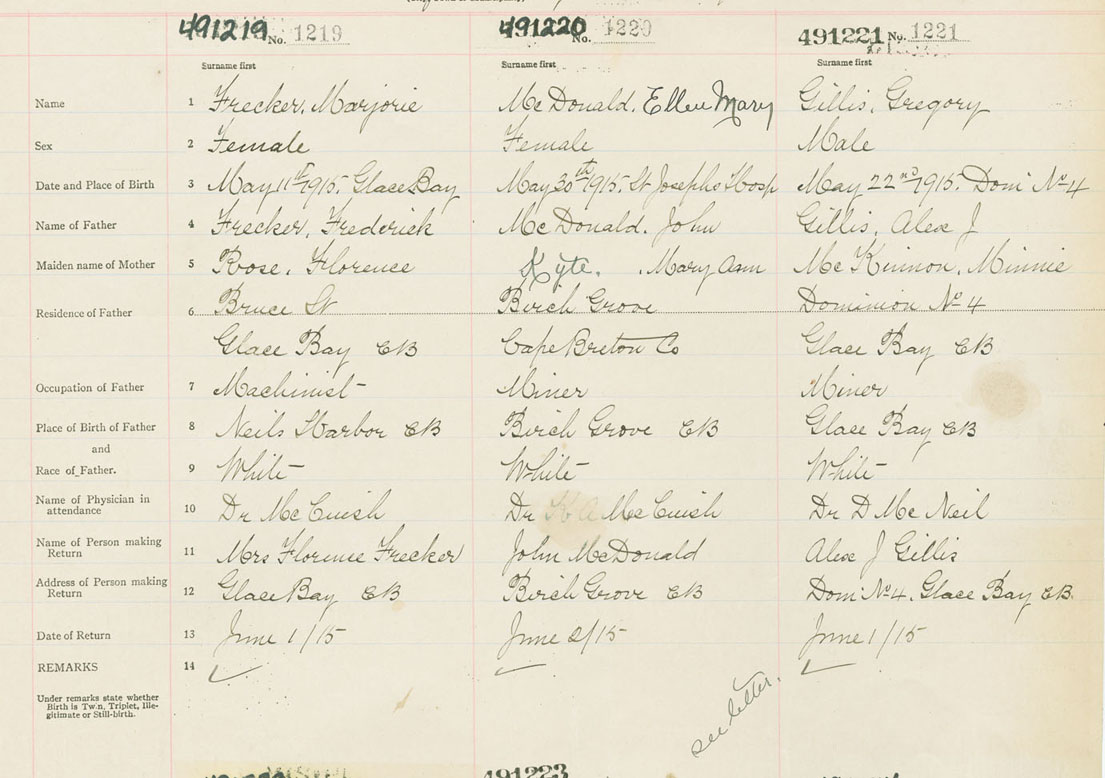 491219 No. 1219 491220 No. 1220 491221 No. 1221
Surname first Surname first Surname first
Name 1 Frecker, Marjorie McDonald, Ellen Mary Gillis, Gregory
Sex 2 Female Female Male
Date and Place of Birth 3 May 11th 1915. Glace Bay May 30th 1915. St Josephs Hosp May 22nd 1915. Dom. No 4
Name of Father 4 Frecker, Frederick McDonald, John Gillis, Alex J
Maiden name of Mother 5 Rose, Florence Kyte, Mary Ann McKinnon, Minnie
Residence of Father 6 Bruce St Birch Grove Dominion No 4
Glace Bay CB Cape Breton Co Glace Bay CB
Occupation of Father 7 Machinist Miner Miner
Place of Birth of Father 8 Neils Harbor CB Birch Grove CB Glace Bay CB
and
Race of Father. 9 White White White
Name of Physician in
attendance 10 Dr McCuish Dr McCuish Dr D McNeil
Name of Person making
Return 11 Mrs Florence Frecker John McDonald Alex J Gillis
Address of Person making
Return 12 Glace Bay CB Birch Grove CB Dom No 4. Glace Bay CB
Date of Return 13 June 1/15 June 2/15 June 1/15
REMARKS 14
Under remarks state whether
Birth is Twin, Triplet, Ille-
gitimate or Still-birth.
see letter.
491223